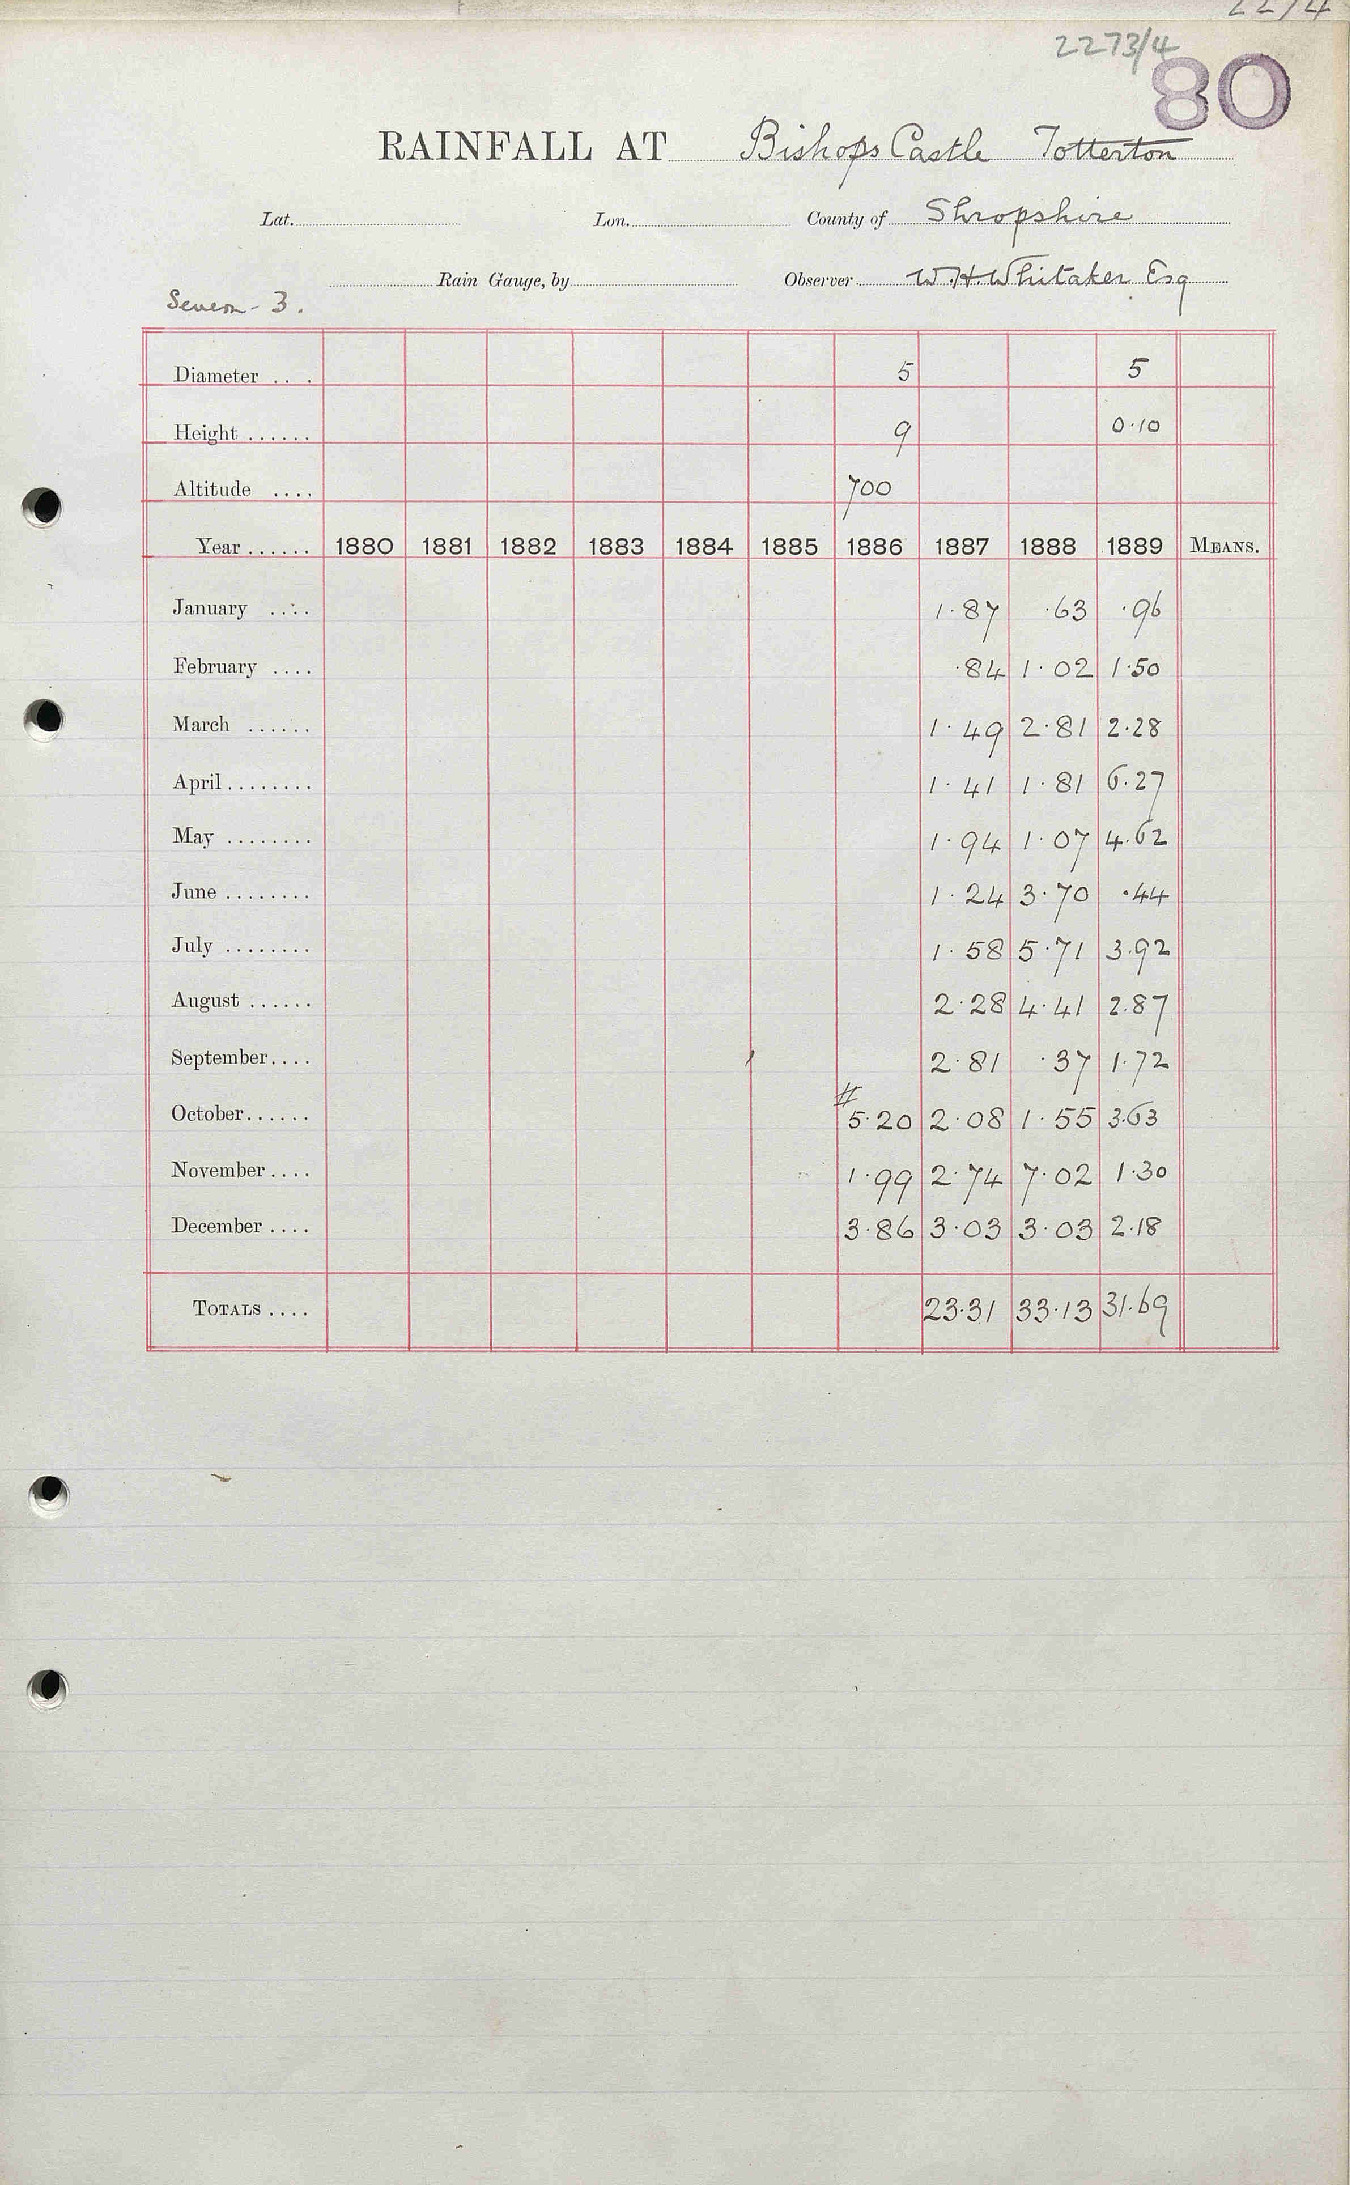 2273/4
80
RAINFALL AT Bishops Castle Totterton
Lat. Lon. County of Shropshire
Rain Gauge, by Observer W.H. Whitaker Esq
Severn - 3.
Diameter .... 5 5
Height ...... 9 0.10
Altitude .... 700
Year ...... 1880 1881 1882 1883 1884 1885 1886 1887 1888 1889 MEANS.
January .... 1.87 .63 .96
February .... .84 1.02 1.50
March ...... 1.49 2.81 2.28
April ........ 1.41 1.81 6.27
May ........ 1.94 1.07 4.62
June ........ 1.24 3.70 .44
July ........ 1.58 5.71 3.92
August ...... 2.28 4.41 2.87
September .... 2.81 .37 1.72
October ...... # 5.20 2.08 1.55 3.63
November .... 1.99 2.74 7.02 1.30
December .... 3.86 3.03 3.03 2.18
TOTALS .... 23.31 33.13 31.69